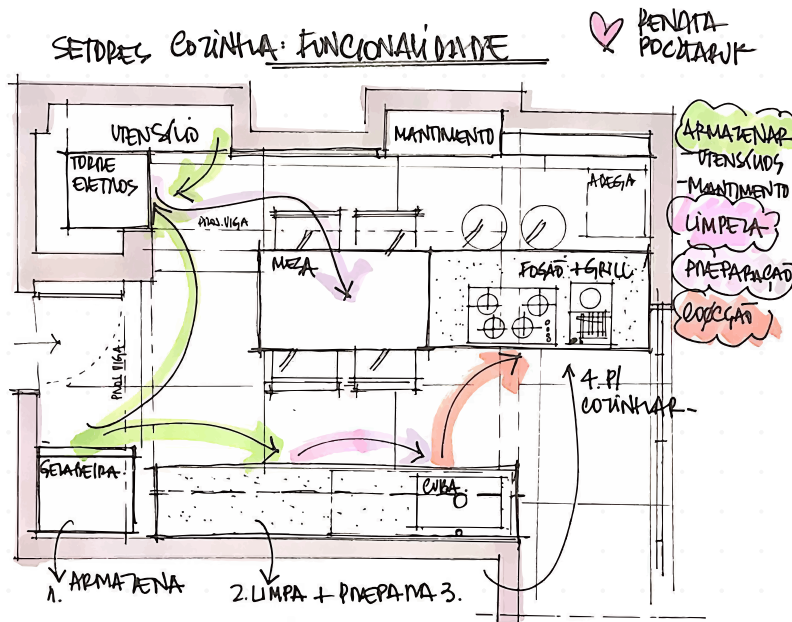 SETORES COZINHA: FUNCIONALIDADE
RENATA
POCZTARUK
UTENSÍLIO
MANTIMENTO
TORRE
ELETROS
PROJ. VIGA
ADEGA
ARMAZENAR
-UTENSÍLIOS
-MANTIMENTO
LIMPEZA
PREPARAÇÃO
COCÇÃO
MESA
FOGÃO + GRILL
PROJ. VIGA
4. P/
COZINHAR-
GELADEIRA
CUBA
1. ARMAZENA
2. LIMPA + PREPARA 3.